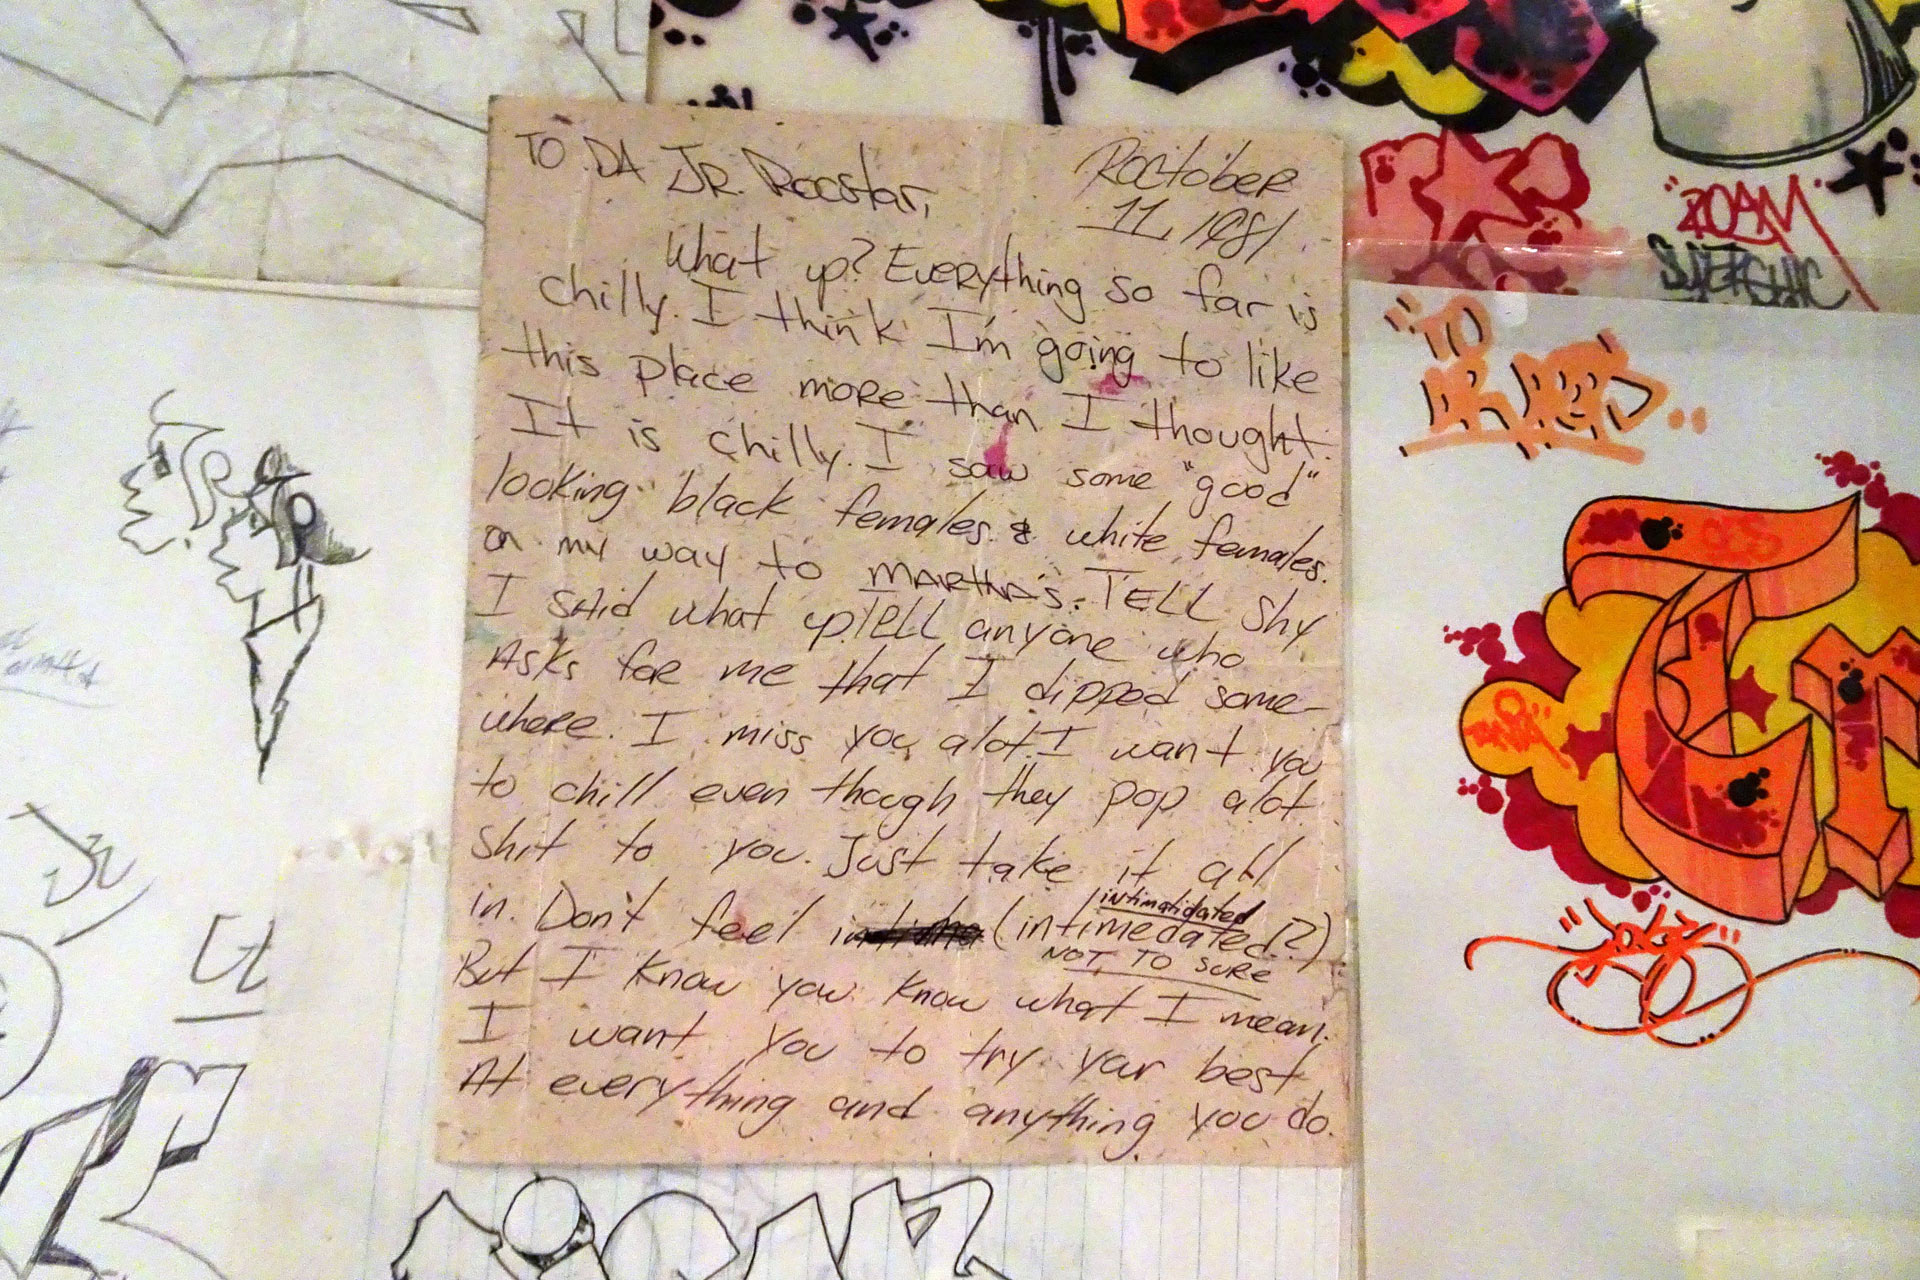 TO DA JR. Rocstar,
Roctober
11, 1981
What up? Everything so far is
chilly. I think I'm going to like
this place more than I thought.
It is chilly. I saw some "good"
looking black females & white females.
on my way to MARTHA'S. TELL Shy
I SAid what up. TELL anyone who
Asks for me that I dipped some-
where. I miss you alot. I want you
to chill even though they pop alot
shit to you. Just take it all
in. Don't feel (intimedated?)
intimatidated
NOT TO SURE
But I know you know what I mean.
I want you to try your best
At everything and anything you do.
ROAM
"TO
"JOKE"